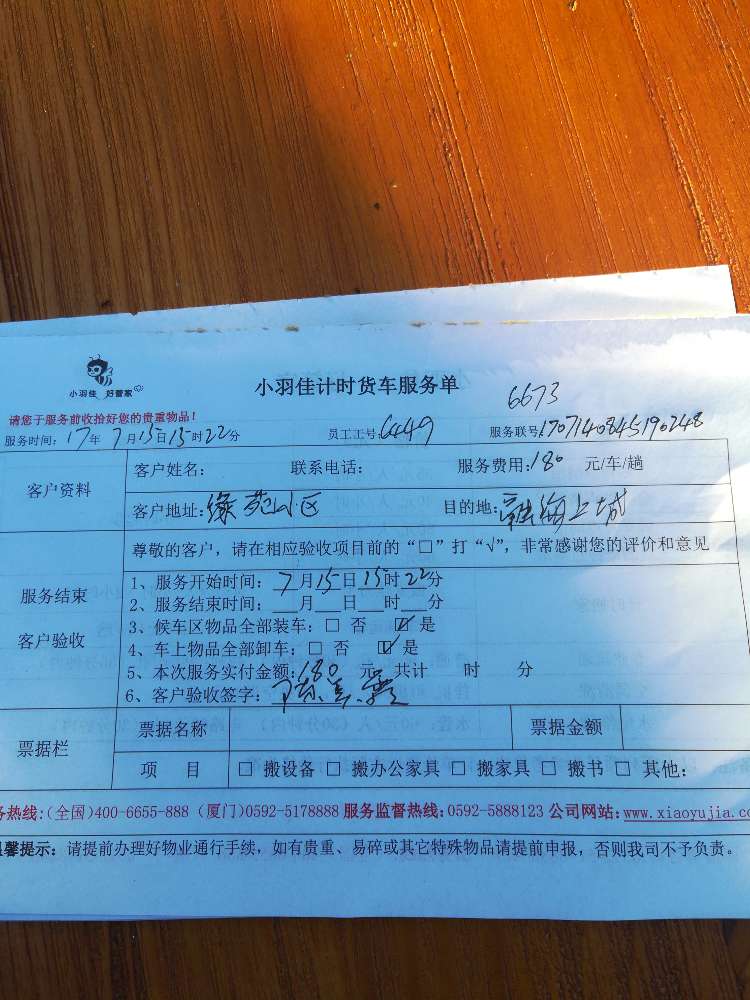 小羽佳 好管家
小羽佳计时货车服务单
6673
请您于服务前收拾好您的贵重物品!
服务时间: 17年 7月15日15时22分 员工工号: 6449 服务联号: 1707140845190248
客户资料
客户姓名: 联系电话: 服务费用: 180 元/车/趟
客户地址: 绿苑小区 目的地: 海上城
服务结束
客户验收
尊敬的客户，请在相应验收项目前的“□”打“√”，非常感谢您的评价和意见
1、服务开始时间: 7月15日15时22分
2、服务结束时间: 月 日 时 分
3、候车区物品全部装车: □ 否 ☑ 是
4、车上物品全部卸车: □ 否 ☑ 是
5、本次服务实付金额: 180 元 共计 时 分
6、客户验收签字: 陈
票据栏
票据名称 票据金额
项 目 □ 搬设备 □ 搬办公家具 □ 搬家具 □ 搬书 □ 其他:
务热线:(全国)400-6655-888 (厦门)0592-5178888 服务监督热线:0592-5888123 公司网站:www.xiaoyujia.co
馨提示: 请提前办理好物业通行手续，如有贵重、易碎或其它特殊物品请提前申报，否则我司不予负责。